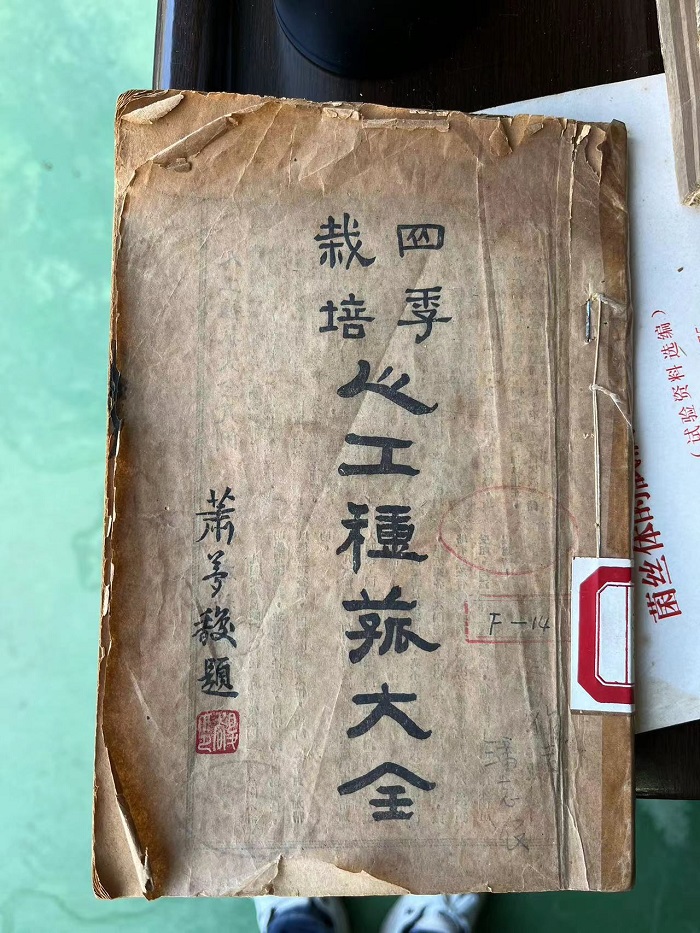 四季
栽培
人工種菰大全
蕭夢馥題
F-14
(试验资料选编)
菌丝体的